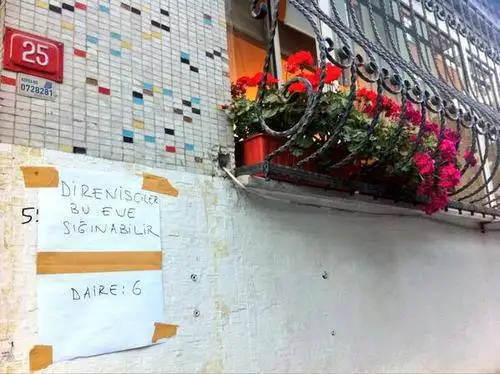 25
0728281
5
DİRENİSÇİLER
BU EVE
SIĞINABİLİR
DAİRE: 6